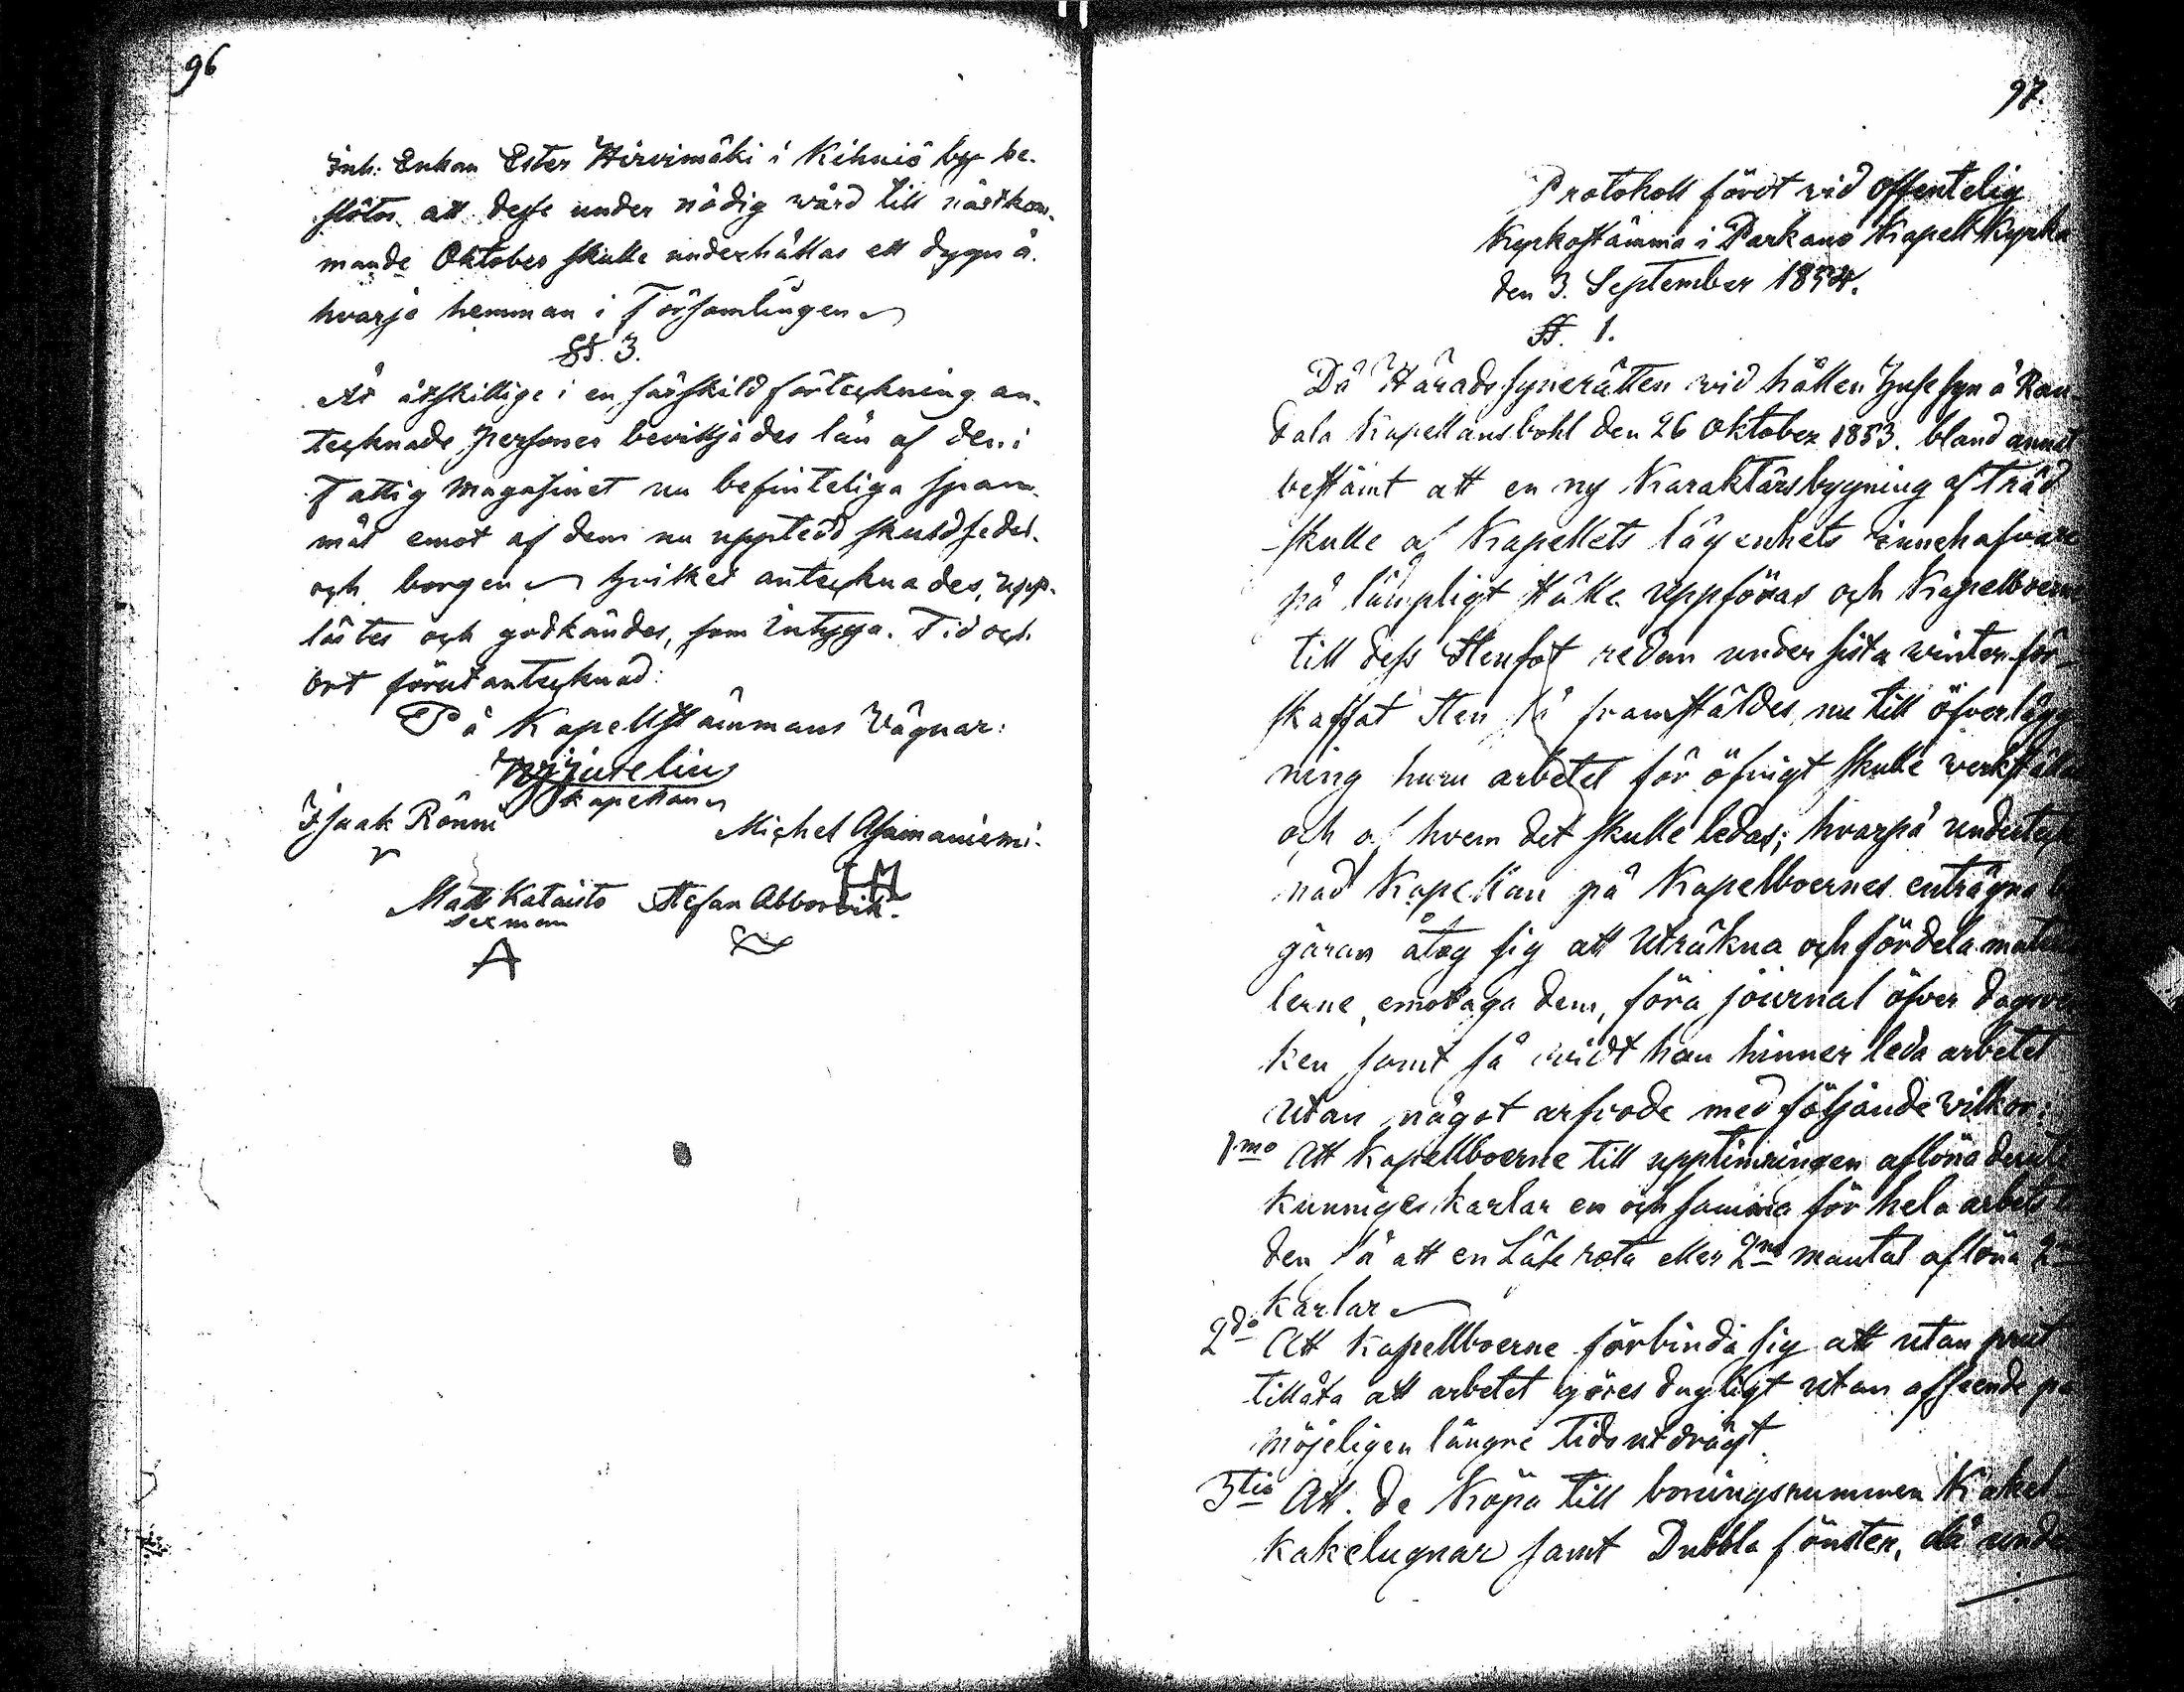 96
Inh. Enkan Ester Hirvimäki i Kihniö by be-
slöts att desse under nödig wård till nästkom-
mande Oktober skulle underhållas ett dygn å
hvarje hemman i Församlingen
§. 3.
Åt åtskillige i en särskild förteckning an-
tecknade personer beviljades lån af den i
Fattig Magasinet nu befinteliga spam-
mål emot af dem nu uppteäd skuldsedel
och borgen hvilket antecknades, upp-
lästes och godkändes, som intyga. Tid och
Ort förutantecknad:
På Kapellstämmans Vägnar:
Kapellan
Isaak Rönni
Michel Alamaniemi.
Matts Kataisto Stefan Abborvik.
sexman
97.
Protokoll fördt vid offentelig
Kyrkostämma i Parkano Kapell Kyrka
den 3. September 1854.
§. 1.
Då Häradssynerätten vid hållen Husesyn å Ran-
dala Kapellansbohl den 26 Oktober 1853. bland annat
bestämt att en ny Karaktärsbygning af Träd
skulle af Kapellets lägenhets innehafvare
på lämpligt ställe uppföras och Kapellboerne
till dess Stenfot redan under sista winter för-
skaffat Sten så framstäldes nu till öfverlägg-
ning huru arbetet för öfrigt skulle werkställas
och af hvem det skulle ledas; hvarpå underteck-
nad Kapellan på Kapellboernes enträgna be-
gäran åtog sig att uträkna och fördela materia-
lerne, emottaga dem, föra journal öfver dagsver-
ken samt så vidt han hinner leda arbetet
utan något arfvode med följande vilkor:
1mo Att Kapellboerne till upptimringen aflöna
kunniga karlar en och samma för hela arbetsti-
den så att en Läse rota eller 2ne mantal aflöna 2ne
Karlar
2do Att Kapellboerne förbinda sig att utan prut
tillåta att arbetet göres dugligt utan afseende på
möjeligen längre Tidsutdrägt.
3tio Att de Köpa till boningsrummen Kakel-
kakelugnar samt Dubbla fönster, då